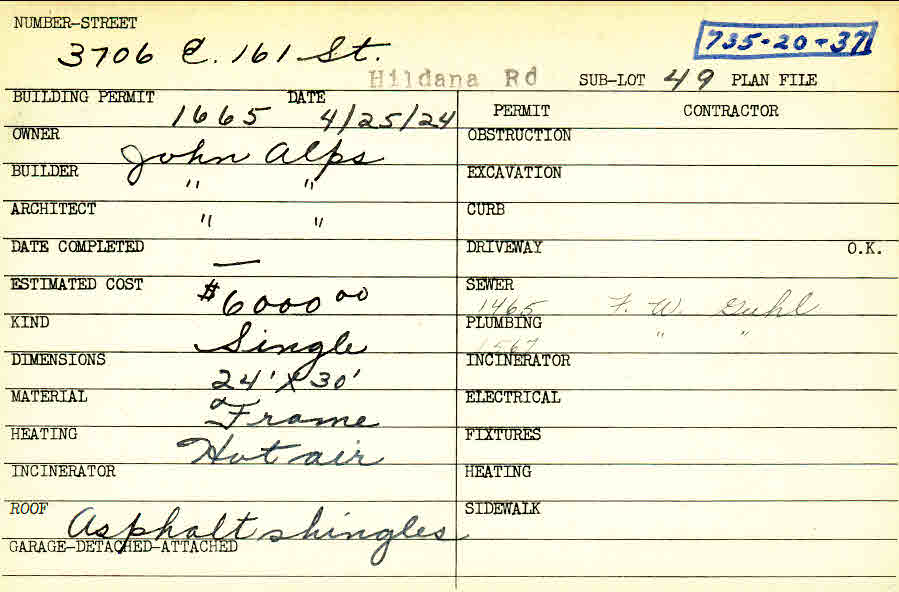 NUMBER-STREET
3706 E. 161 St.
735-20-37
Hildana Rd SUB-LOT 49 PLAN FILE
BUILDING PERMIT 1665 DATE 4/25/24
PERMIT CONTRACTOR
OWNER John Alps
OBSTRUCTION
BUILDER " "
EXCAVATION
ARCHITECT " "
CURB
DATE COMPLETED —
DRIVEWAY O.K.
ESTIMATED COST $6000 00
SEWER 1465 F. W. Guhl
KIND Single
PLUMBING 1567 " "
DIMENSIONS 24' X 30'
INCINERATOR
MATERIAL Frame
ELECTRICAL
HEATING Hot air
FIXTURES
INCINERATOR
HEATING
ROOF Asphalt shingles
SIDEWALK
GARAGE-DETACHED-ATTACHED